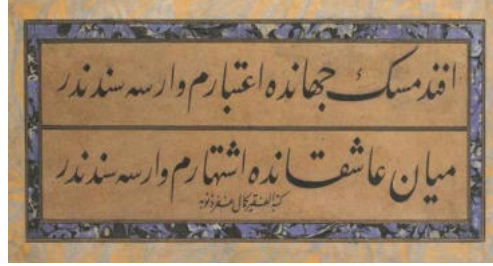 افندمسك جهانده اعتبارم وارسه سندندر
ميان عاشقانده اشتهارم وارسه سندندر
كتبه الفقير كمال غفر ذنوبه